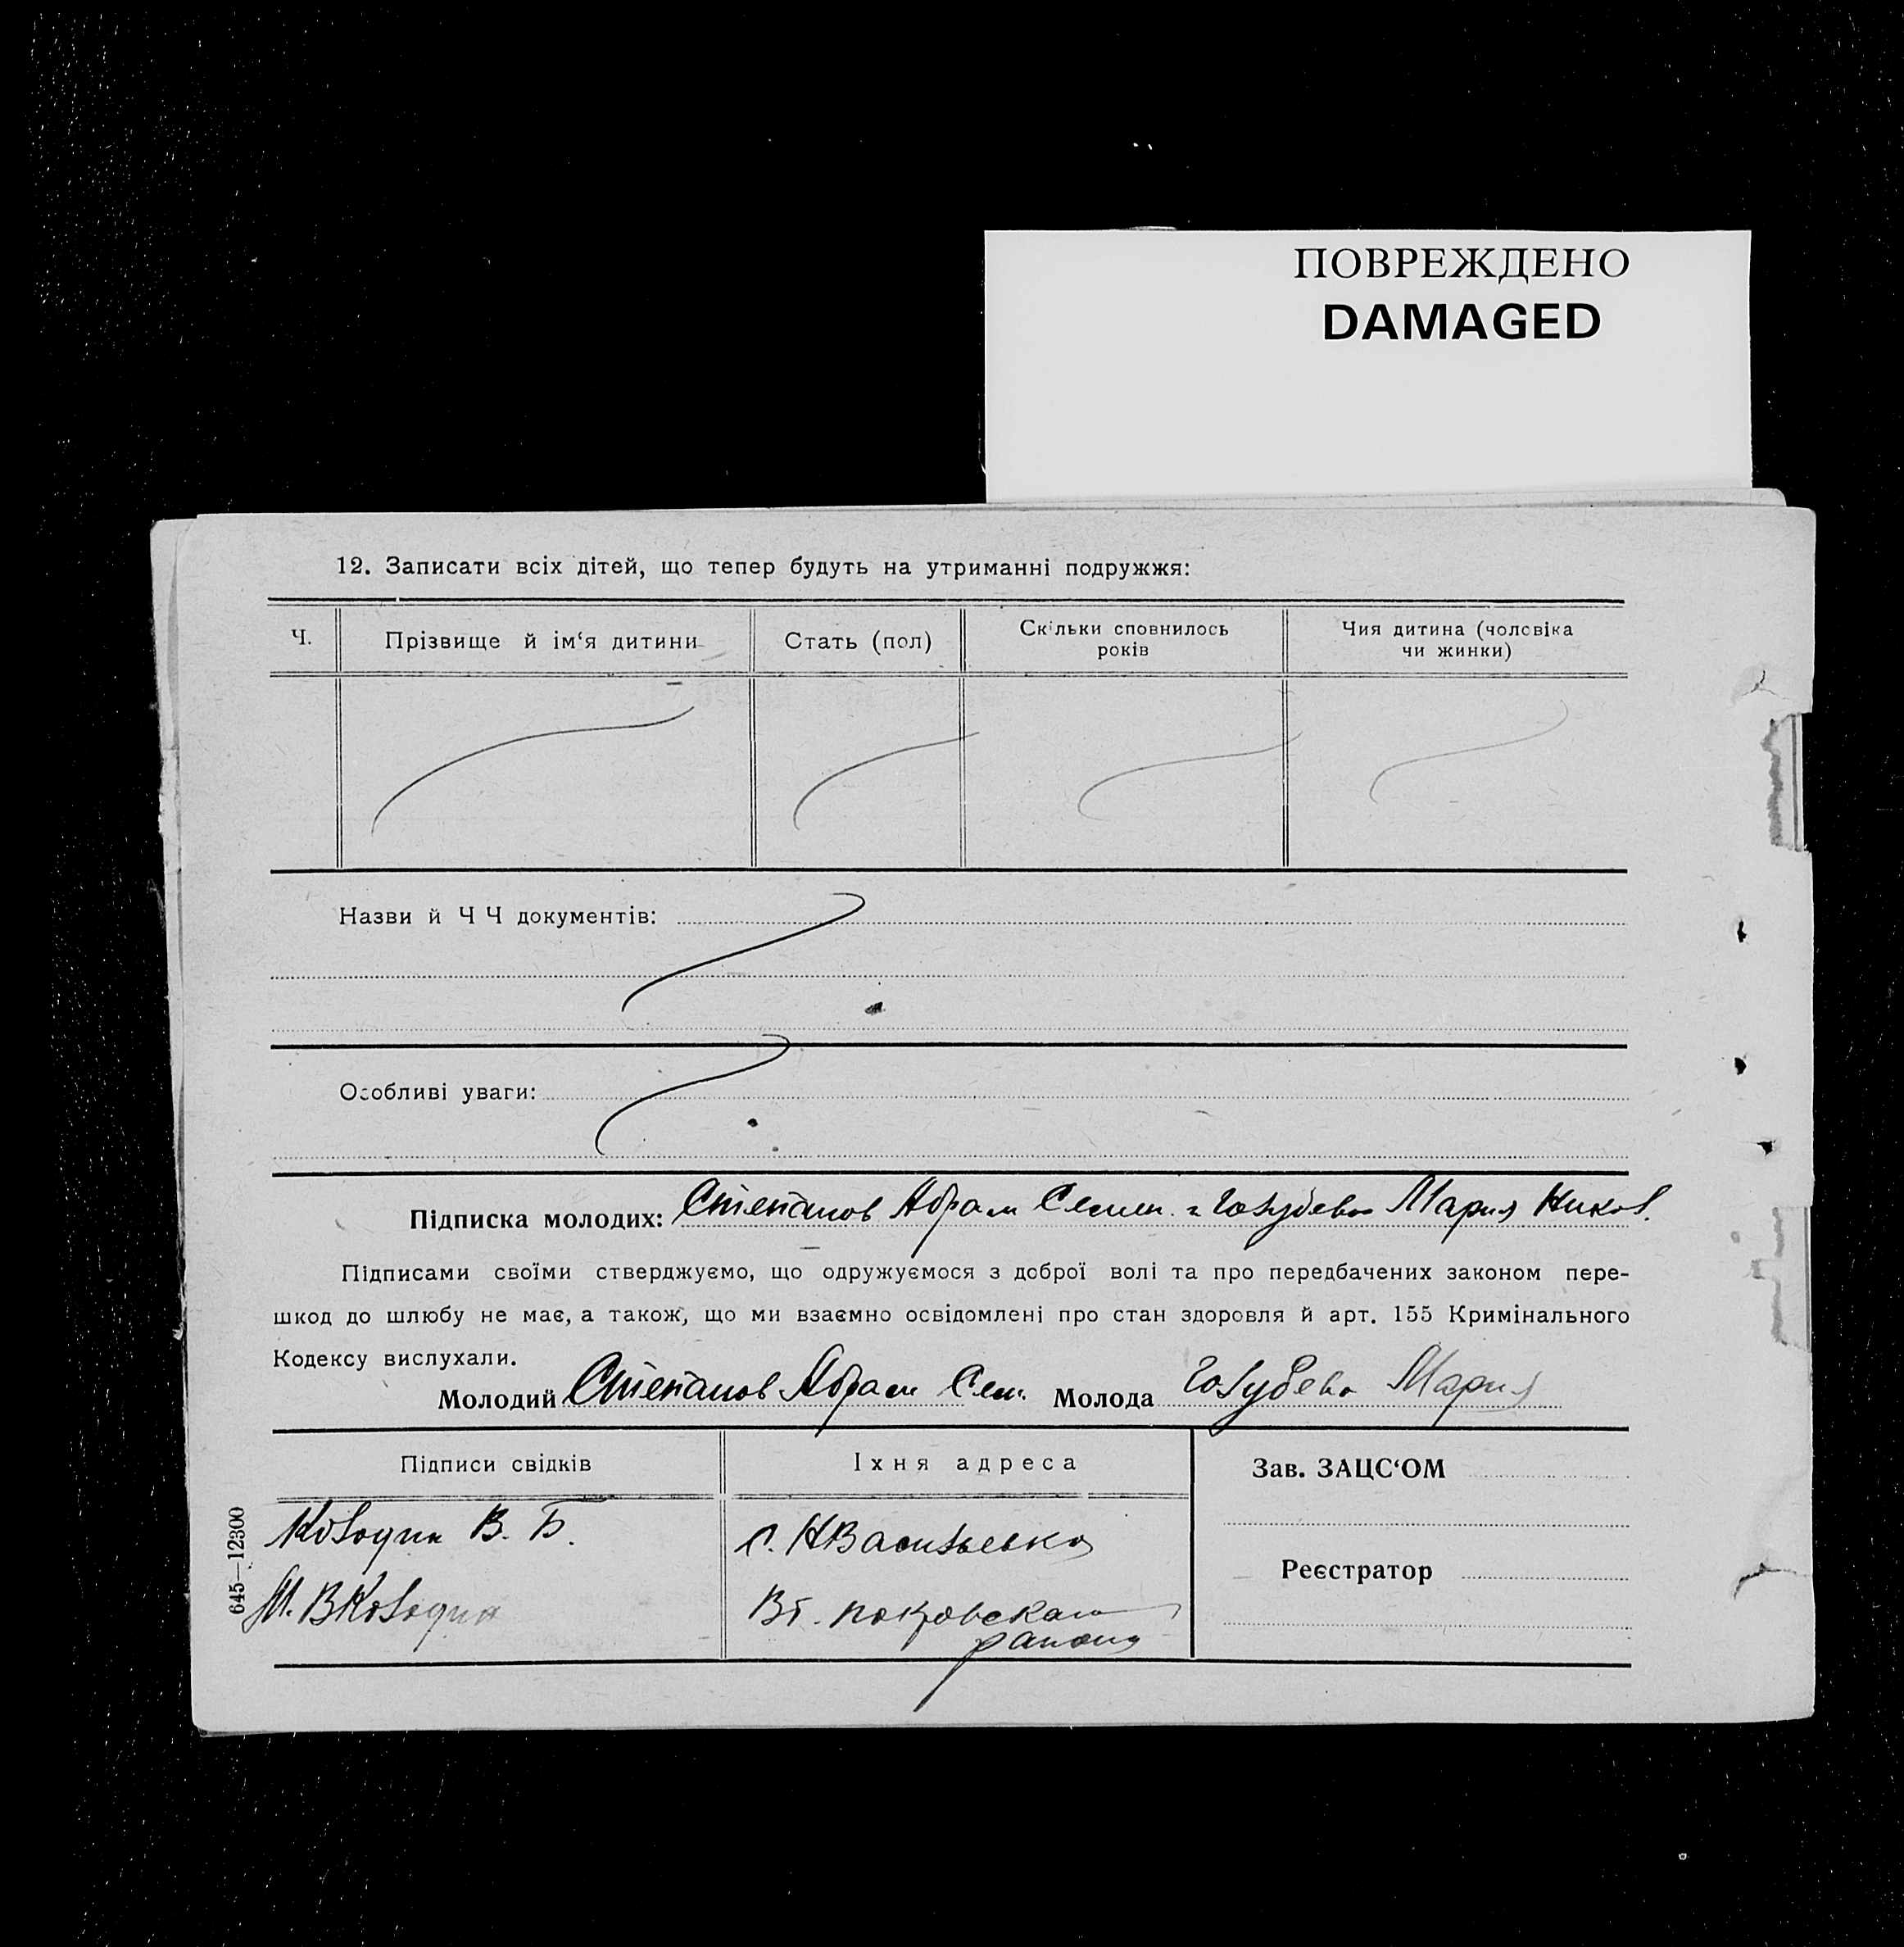 ПОВРЕЖДЕНО
DAMAGED
12. Записати всіх дітей, що тепер будуть на утриманні подружжя:
Ч.
Прізвище й ім‘я дитини
Стать (пол)
Скільки сповнилось
років
Чия дитина (чоловіка
чи жинки)
Назви й ЧЧ документів:
Особливі уваги:
Підписка молодих: Степанов Абрам Семен. и Голубева Мария Никол.
Підписами своїми стверджуємо, що одружуємося з доброї волі та про передбачених законом пере-
шкод до шлюбу не має, а також, що ми взаємно освідомлені про стан здоровля й арт. 155 Кримінального
Кодексу вислухали.
Молодий Степанов Абрам Сем. Молода Голубева Мария
Підписи свідків
Їхня адреса
Зав. ЗАЦС‘ОМ
Колодин В. Б.
с. НВасильевка
Реєстратор
М. В Колодин
Вт. покровскаг
района
645—12300